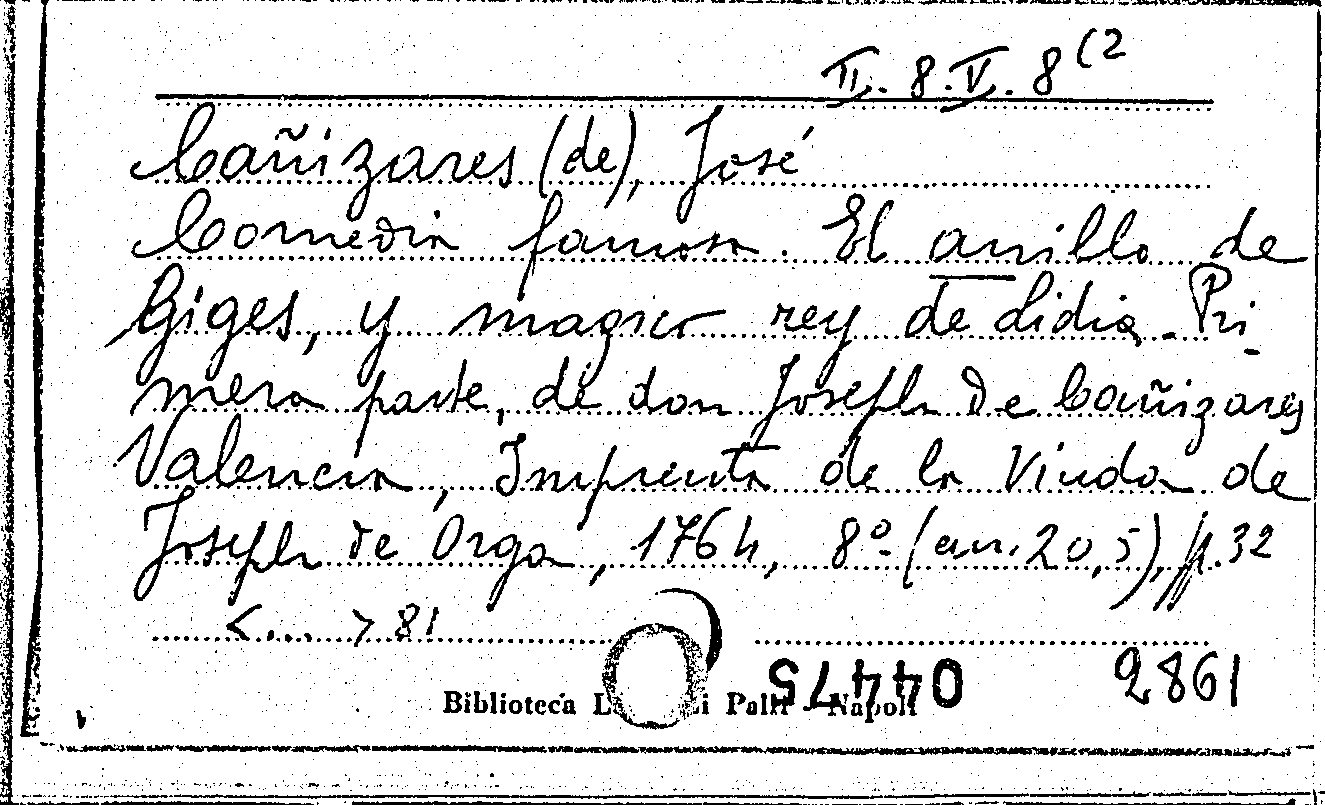 II. 8. V. 8 (2
Cañizares (de), José
Comedia famosa. El anillo de
Giges, y magico rey de Lidia. Pri-
mera parte, de don Joseph de Cañizares
Valencia, Imprenta de la Viuda de
Joseph de Orga, 1764, 8º (cm. 20,5), pp. 32
<... > 81
044775 2861
Biblioteca L i Palli - Napoli